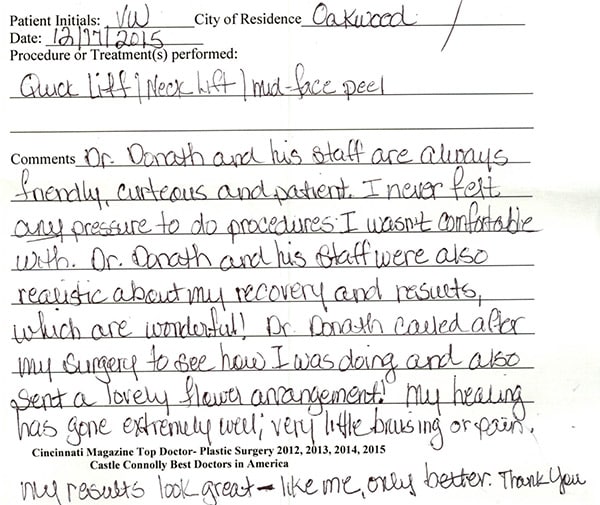 Patient Initials: VW City of Residence Oakwood
Date: 12/17/2015
Procedure or Treatment(s) performed:
Quick Lift/Neck Lift/mid-face peel
Comments Dr. Donath and his staff are always
friendly, curteous and patient. I never felt
any pressure to do procedures I wasn't comfortable
with. Dr. Donath and his staff were also
realistic about my recovery and results,
which are wonderful! Dr. Donath called after
my surgery to see how I was doing and also
sent a lovely flower arrangement! My healing
has gone extremely well; very little bruising or pain.
Cincinnati Magazine Top Doctor- Plastic Surgery 2012, 2013, 2014, 2015
Castle Connolly Best Doctors in America
My results look great - like me, only better. Thank you